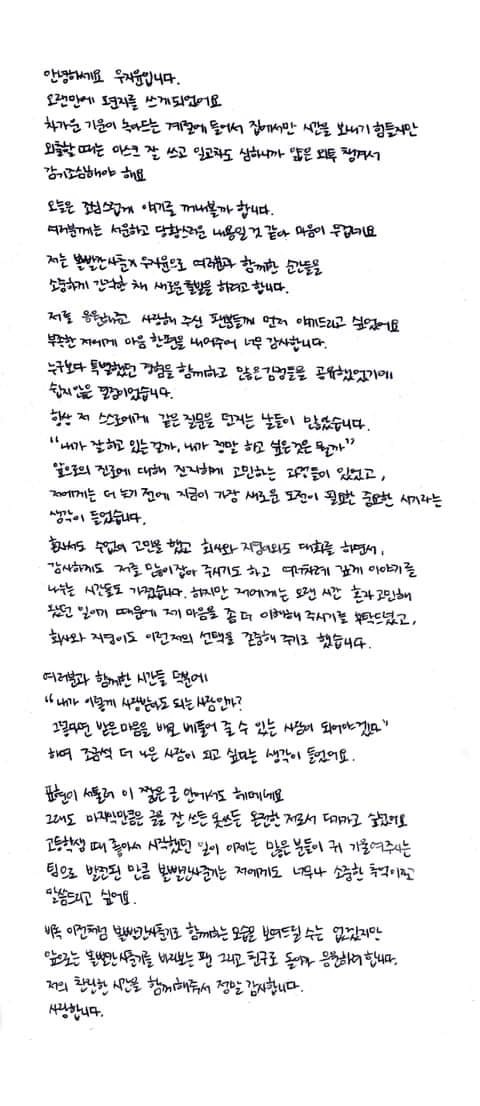 안녕하세요 우지윤입니다.
오랜만에 손편지를 쓰게되었어요
차가운 기운이 녹아드는 계절에 들어서 집에서만 시간을 보내기 힘들지만
외출할 때는 마스크 잘 쓰고 일교차도 심하니까 얇은 외투 챙겨서
감기조심해야 해요
오늘은 조심스럽게 얘기를 꺼내볼까 합니다.
여러분께는 서운하고 당황스러운 내용일 것 같아 마음이 무겁네요
저는 볼빨간사춘기 우지윤으로 여러분과 함께한 순간들을
소중하게 간직한 채 새로운 출발을 하려고 합니다.
저를 응원해주고 사랑해 주신 팬분들께 먼저 얘기드리고 싶었어요
부족한 저에게 마음 한편을 내어주어 너무 감사합니다.
누구보다 특별했던 경험을 함께하고 많은 감정들을 공유했었기에
쉽지 않은 결정이었습니다.
항상 저 스스로에게 같은 질문을 던지는 날들이 많았습니다.
"내가 잘 하고 있는걸까, 내가 정말 하고 싶은 것은 뭘까"
앞으로의 진로에 대해 진지하게 고민하는 과정들이 있었고,
저에게는 더 늦기 전에 지금이 가장 새로운 도전이 필요한 중요한 시기라는
생각이 들었습니다.
혼자서도 수없이 고민을 했고 회사와 지영이와도 대화를 하면서,
감사하게도 저를 많이 잡아 주시기도 하고 여러차례 깊게 이야기를
나누는 시간들도 가졌습니다. 하지만 저에게는 오랜 시간 혼자 고민해
왔던 일이기 때문에 제 마음을 좀 더 이해해 주시기를 부탁드렸고,
회사와 지영이도 이런 저의 선택을 존중해 주기로 했습니다.
여러분과 함께한 시간들 덕분에
"내가 이렇게 사랑받아도 되는 사람인가?
그렇다면 받은 마음을 배로 베풀어 줄 수 있는 사람이 되어야겠다"
하며 조금씩 더 나은 사람이 되고 싶다는 생각이 들었어요.
표현이 서툴러 이 짧은 글 안에서도 헤매네요
그래도 마지막만큼은 글을 잘 쓰든 못쓰든 온전한 저로서 다가가고 싶었어요
고등학생 때 좋아서 시작했던 일이 이제는 많은 분들이 귀 기울여주시는
팀으로 발전된 만큼 볼빨간사춘기는 저에게도 너무나 소중한 추억이라고
말씀드리고 싶어요.
비록 이전처럼 볼빨간사춘기로 함께하는 모습을 보여드릴 수는 없겠지만
앞으로는 볼빨간사춘기를 바라보는 팬 그리고 친구로 돌아가 응원하려 합니다.
저의 찬란한 시간을 함께해줘서 정말 감사합니다.
사랑합니다.